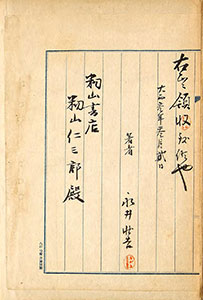 右正に領収致候也
大正参年参月弐日
著者
永井壮吉
籾山書店
籾山仁三郎殿